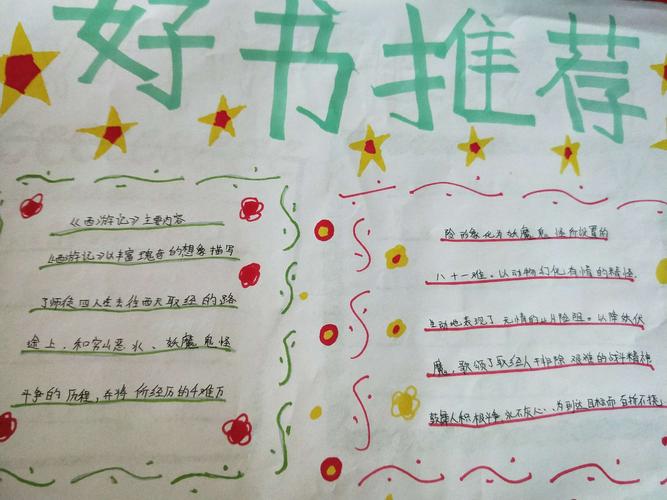 好书推荐
《西游记》主要内容
《西游记》以丰富瑰奇的想象描写
了师徒四人在去往西天取经的路
途上,和穷山恶水、妖魔鬼怪
斗争的历程,并将所经历的千难万
险形象化为妖魔鬼怪所设置的
八十一难。以动物幻化有情的精怪
生动地表现了无情的山川险阻。以降妖伏
魔,歌颂了取经人不排除艰难的战斗精神
鼓舞人积极斗争、永不灰心、为到达目标而百折不挠。